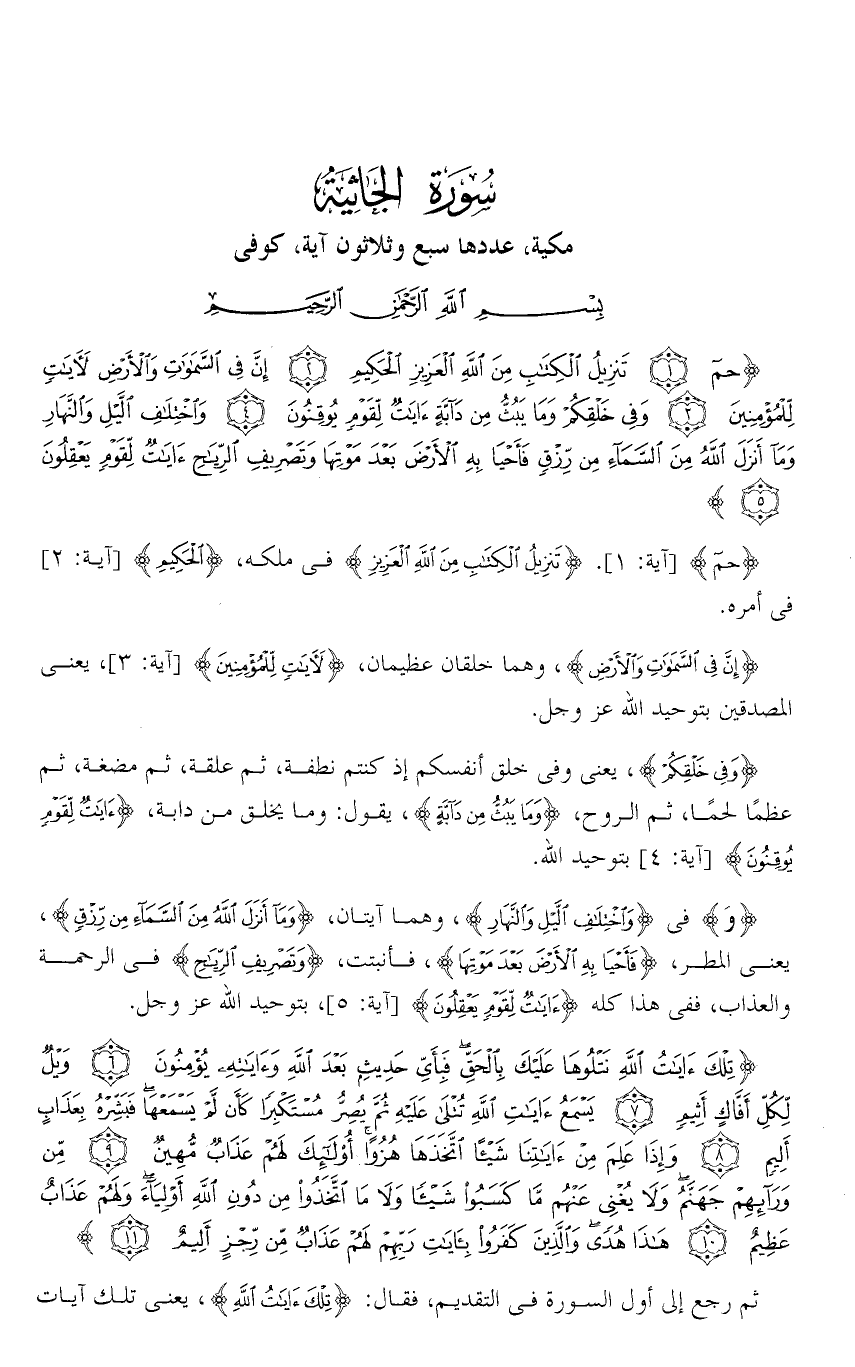 سُورَةُ الجَاثِيَةِ
مكية، عددها سبع وثلاثون آية، كوفى
بِسْمِ ٱللَّهِ ٱلرَّحْمَٰنِ ٱلرَّحِيمِ
﴿حمٓ ١ تَنزِيلُ ٱلْكِتَٰبِ مِنَ ٱللَّهِ ٱلْعَزِيزِ ٱلْحَكِيمِ ٢ إِنَّ فِى ٱلسَّمَٰوَٰتِ وَٱلْأَرْضِ لَأٓيَٰتٍ
لِّلْمُؤْمِنِينَ ٣ وَفِى خَلْقِكُمْ وَمَا يَبُثُّ مِن دَآبَّةٍ ءَايَٰتٌ لِّقَوْمٍ يُوقِنُونَ ٤ وَٱخْتِلَٰفِ ٱلَّيْلِ وَٱلنَّهَارِ
وَمَآ أَنزَلَ ٱللَّهُ مِنَ ٱلسَّمَآءِ مِن رِّزْقٍ فَأَحْيَا بِهِ ٱلْأَرْضَ بَعْدَ مَوْتِهَا وَتَصْرِيفِ ٱلرِّيَٰحِ ءَايَٰتٌ لِّقَوْمٍ يَعْقِلُونَ
٥ ﴾
﴿حمٓ﴾ [آية: ١]. ﴿تَنزِيلُ ٱلْكِتَٰبِ مِنَ ٱللَّهِ ٱلْعَزِيزِ﴾ فى ملكه، ﴿ٱلْحَكِيمِ﴾ [آية: ٢]
فى أمره.
﴿إِنَّ فِى ٱلسَّمَٰوَٰتِ وَٱلْأَرْضِ﴾، وهما خلقان عظيمان، ﴿لَأٓيَٰتٍ لِّلْمُؤْمِنِينَ﴾ [آية: ٣]، يعنى
المصدقين بتوحيد الله عز وجل.
﴿وَفِى خَلْقِكُمْ﴾، يعنى وفى خلق أنفسكم إذ كنتم نطفة، ثم علقة، ثم مضغة، ثم
عظمًا لحمًا، ثم الروح، ﴿وَمَا يَبُثُّ مِن دَآبَّةٍ﴾، يقول: وما يخلق من دابة، ﴿ءَايَٰتٌ لِّقَوْمٍ
يُوقِنُونَ﴾ [آية: ٤] بتوحيد الله.
﴿وَ﴾ فى ﴿وَٱخْتِلَٰفِ ٱلَّيْلِ وَٱلنَّهَارِ﴾، وهما آيتان، ﴿وَمَآ أَنزَلَ ٱللَّهُ مِنَ ٱلسَّمَآءِ مِن رِّزْقٍ﴾،
يعنى المطر، ﴿فَأَحْيَا بِهِ ٱلْأَرْضَ بَعْدَ مَوْتِهَا﴾، فأنبتت، ﴿وَتَصْرِيفِ ٱلرِّيَٰحِ﴾ فى الرحمة
والعذاب، ففى هذا كله ﴿ءَايَٰتٌ لِّقَوْمٍ يَعْقِلُونَ﴾ [آية: ٥]، بتوحيد الله عز وجل.
﴿تِلْكَ ءَايَٰتُ ٱللَّهِ نَتْلُوهَا عَلَيْكَ بِٱلْحَقِّ ۖ فَبِأَىِّ حَدِيثٍۭ بَعْدَ ٱللَّهِ وَءَايَٰتِهِۦ يُؤْمِنُونَ ٦ وَيْلٌ
لِّكُلِّ أَفَّاكٍ أَثِيمٍ ٧ يَسْمَعُ ءَايَٰتِ ٱللَّهِ تُتْلَىٰ عَلَيْهِ ثُمَّ يُصِرُّ مُسْتَكْبِرًا كَأَن لَّمْ يَسْمَعْهَا ۖ فَبَشِّرْهُ بِعَذَابٍ
أَلِيمٍ ٨ وَإِذَا عَلِمَ مِنْ ءَايَٰتِنَا شَيْـًٔا ٱتَّخَذَهَا هُزُوًا ۚ أُو۟لَٰٓئِكَ لَهُمْ عَذَابٌ مُّهِينٌ ٩ مِّن
وَرَآئِهِمْ جَهَنَّمُ ۖ وَلَا يُغْنِى عَنْهُم مَّا كَسَبُوا۟ شَيْـًٔا وَلَا مَا ٱتَّخَذُوا۟ مِن دُونِ ٱللَّهِ أَوْلِيَآءَ ۖ وَلَهُمْ عَذَابٌ
عَظِيمٌ ١٠ هَٰذَا هُدًى ۖ وَٱلَّذِينَ كَفَرُوا۟ بِـَٔايَٰتِ رَبِّهِمْ لَهُمْ عَذَابٌ مِّن رِّجْزٍ أَلِيمٌ ١١ ﴾
ثم رجع إلى أول السورة فى التقديم، فقال: ﴿تِلْكَ ءَايَٰتُ ٱللَّهِ﴾، يعنى تلك آيات